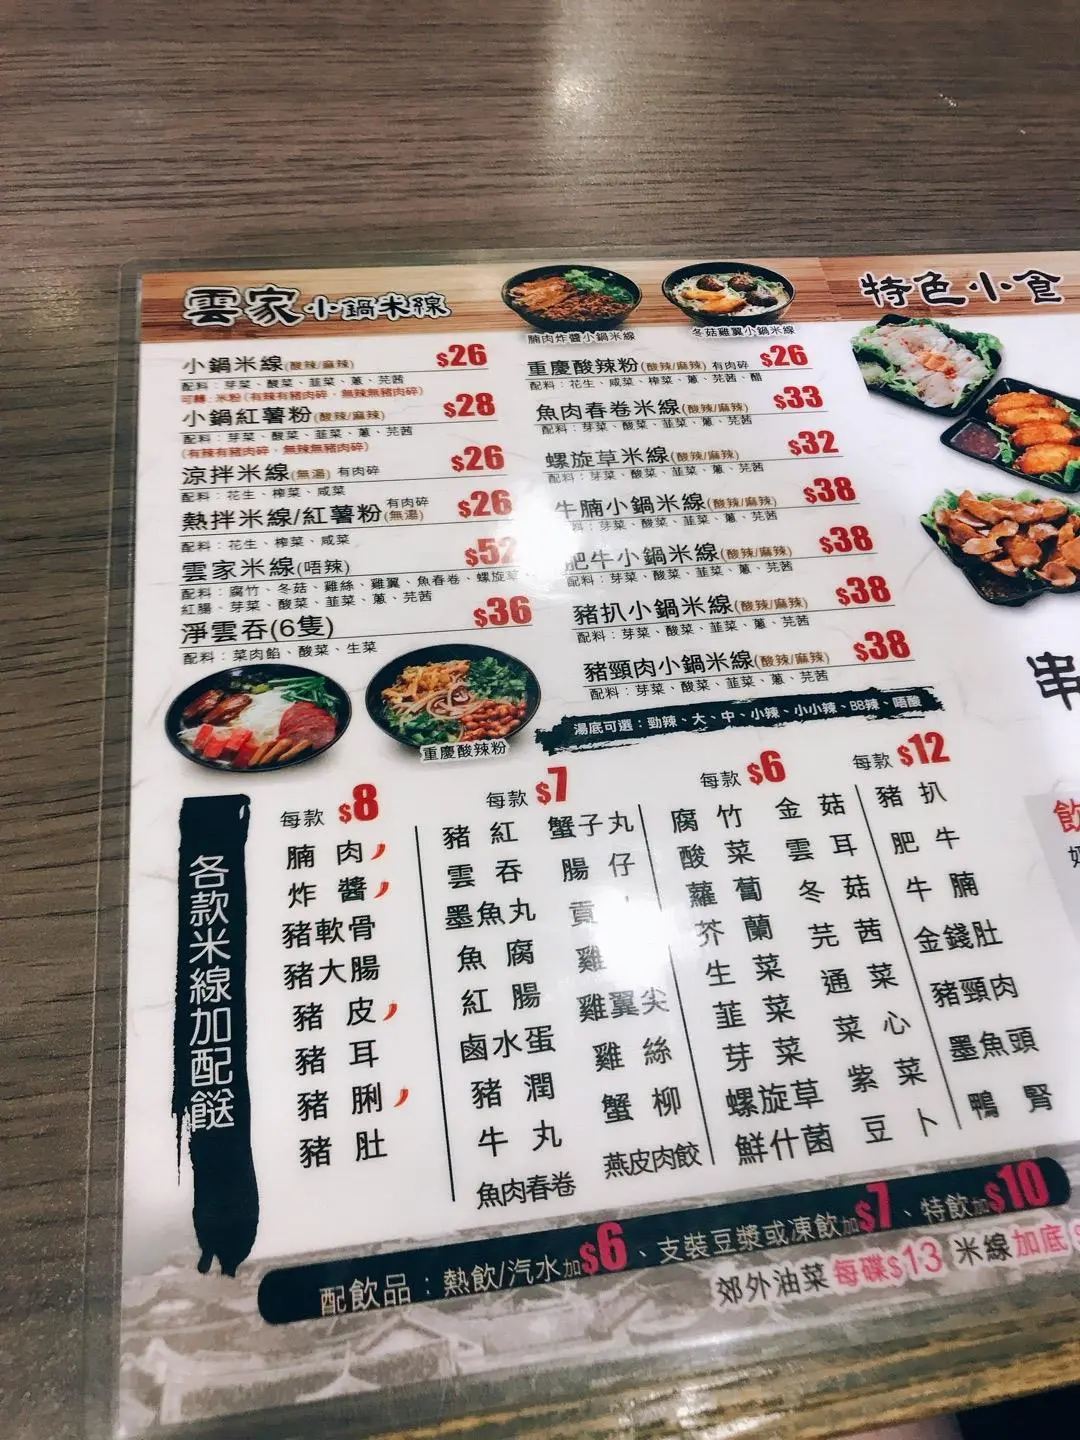 雲家小鍋米線
腩肉炸醬小鍋米線
冬菇雞翼小鍋米線
特色小食
小鍋米線(酸辣/麻辣) $26
配料：芽菜、酸菜、韮菜、蔥、芫茜
可轉:米粉(有辣有豬肉碎,無辣無豬肉碎)
小鍋紅薯粉(酸辣/麻辣) $28
配料：芽菜、酸菜、韮菜、蔥、芫茜
(有辣有豬肉碎,無辣無豬肉碎)
涼拌米線(無湯) 有肉碎 $26
配料：花生、榨菜、咸菜
熱拌米線/紅薯粉 有肉碎(無湯) $26
配料：花生、榨菜、咸菜
雲家米線(唔辣) $52
配料：腐竹、冬菇、雞絲、雞翼、魚春卷、螺旋草、
紅腸、芽菜、酸菜、韮菜、蔥、芫茜
淨雲吞(6隻) $36
配料：菜肉餡、酸菜、生菜
重慶酸辣粉
重慶酸辣粉(酸辣/麻辣) 有肉碎 $26
配料：花生、咸菜、榨菜、蔥、芫茜、醋
魚肉春卷米線(酸辣/麻辣) $33
配料：芽菜、酸菜、韮菜、蔥、芫茜
螺旋草米線(酸辣/麻辣) $32
配料：芽菜、酸菜、韮菜、蔥、芫茜
牛腩小鍋米線(酸辣/麻辣) $38
配料：芽菜、酸菜、韮菜、蔥、芫茜
肥牛小鍋米線(酸辣/麻辣) $38
配料：芽菜、酸菜、韮菜、蔥、芫茜
豬扒小鍋米線(酸辣/麻辣) $38
配料：芽菜、酸菜、韮菜、蔥、芫茜
豬頸肉小鍋米線(酸辣/麻辣) $38
配料：芽菜、酸菜、韮菜、蔥、芫茜
湯底可選：勁辣、大、中、小辣、小小辣、BB辣、唔酸
串
飲
各款米線加配餸
每款 $8
腩肉
炸醬
豬軟骨
豬大腸
豬皮
豬耳
豬脷
豬肚
每款 $7
豬紅 蟹子丸
雲吞 腸仔
墨魚丸 貢
魚腐 雞
紅腸 雞翼尖
鹵水蛋 雞絲
豬潤 蟹柳
牛丸 燕皮肉餃
魚肉春卷
每款 $6
腐竹 金菇
酸菜 雲耳
蘿蔔 冬菇
芥蘭 芫茜
生菜 通菜
韮菜 菜心
芽菜 紫菜
螺旋草 豆卜
鮮什菌
每款 $12
豬扒
肥牛
牛腩
金錢肚
豬頸肉
墨魚頭
鴨腎
配飲品：熱飲/汽水加$6、支裝豆漿或凍飲加$7、特飲加$10
郊外油菜每碟$13 米線加底